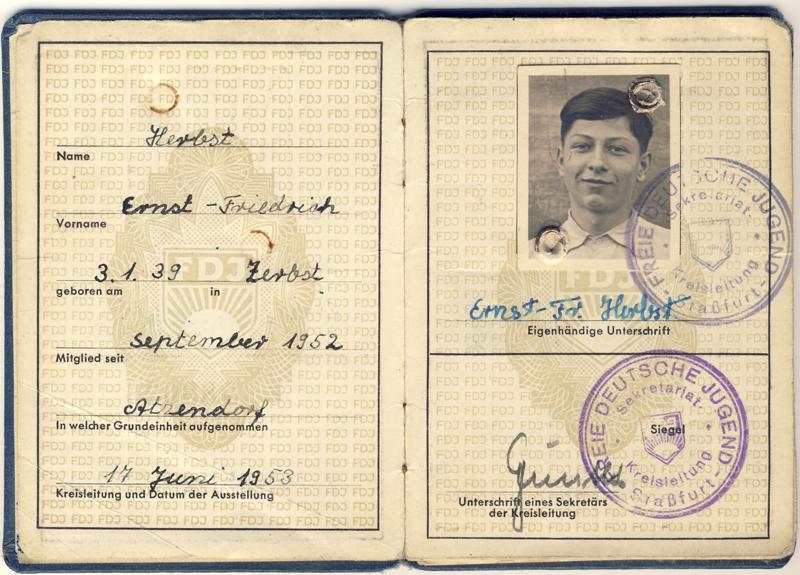 Herbst
Name
Ernst-Friedrich
Vorname
3.1.39 Zerbst
geboren am in
September 1952
Mitglied seit
Atzendorf
In welcher Grundeinheit aufgenommen
17 Juni 1953
Kreisleitung und Datum der Ausstellung
FDJ
FREIE DEUTSCHE JUGEND
Sekretariat
Kreisleitung
Staßfurt
Ernst-Fr. Herbst
Eigenhändige Unterschrift
FREIE DEUTSCHE JUGEND
Sekretariat
Siegel
Kreisleitung
Staßfurt
Unterschrift eines Sekretärs
der Kreisleitung